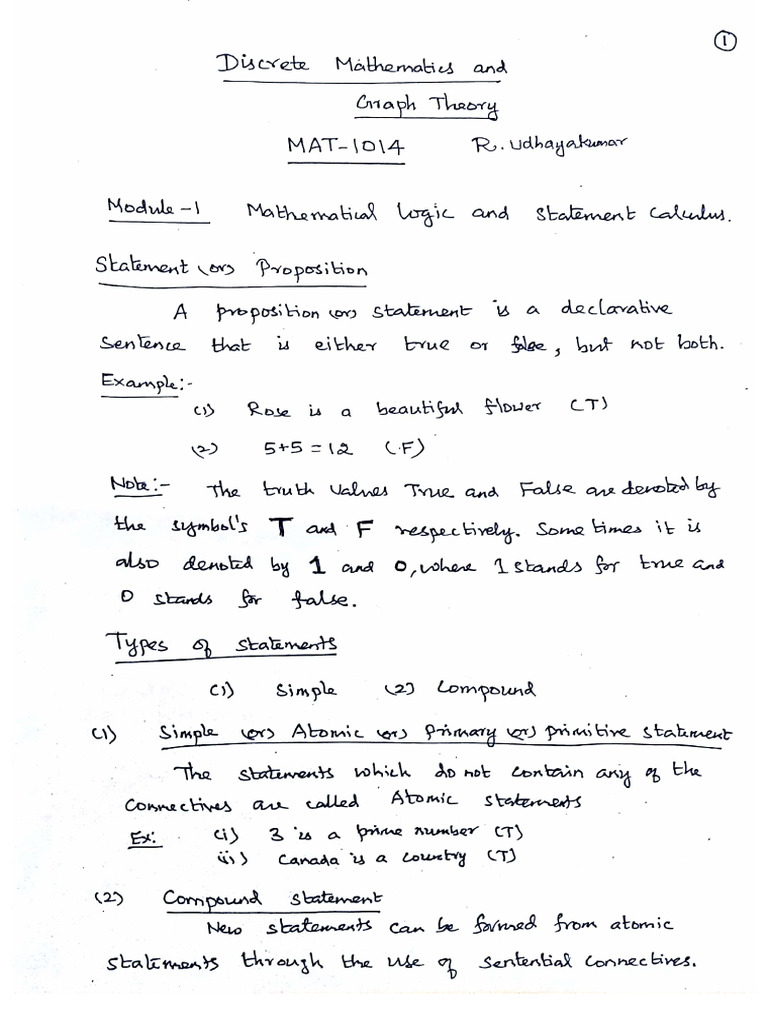 1
Discrete Mathematics and
Graph Theory
MAT-1014 R. Udhayakumar
Module-1 Mathematical Logic and Statement Calculus.
Statement (or) Proposition
A proposition (or) statement is a declarative
sentence that is either true or false, but not both.
Example:-
(1) Rose is a beautiful flower (T)
(2) 5+5=12 (F)
Note:- The truth values True and False are denoted by
the symbol's T and F respectively. Some times it is
also denoted by 1 and 0, where 1 stands for true and
0 stands for false.
Types of statements
(1) Simple (2) Compound
(1) Simple (or) Atomic (or) Primary (or) primitive statement
The statements which do not contain any of the
connectives are called Atomic statements
Ex: (i) 3 is a prime number (T)
(ii) Canada is a country (T)
(2) Compound statement
New statements can be formed from atomic
statements through the use of sentential connectives.